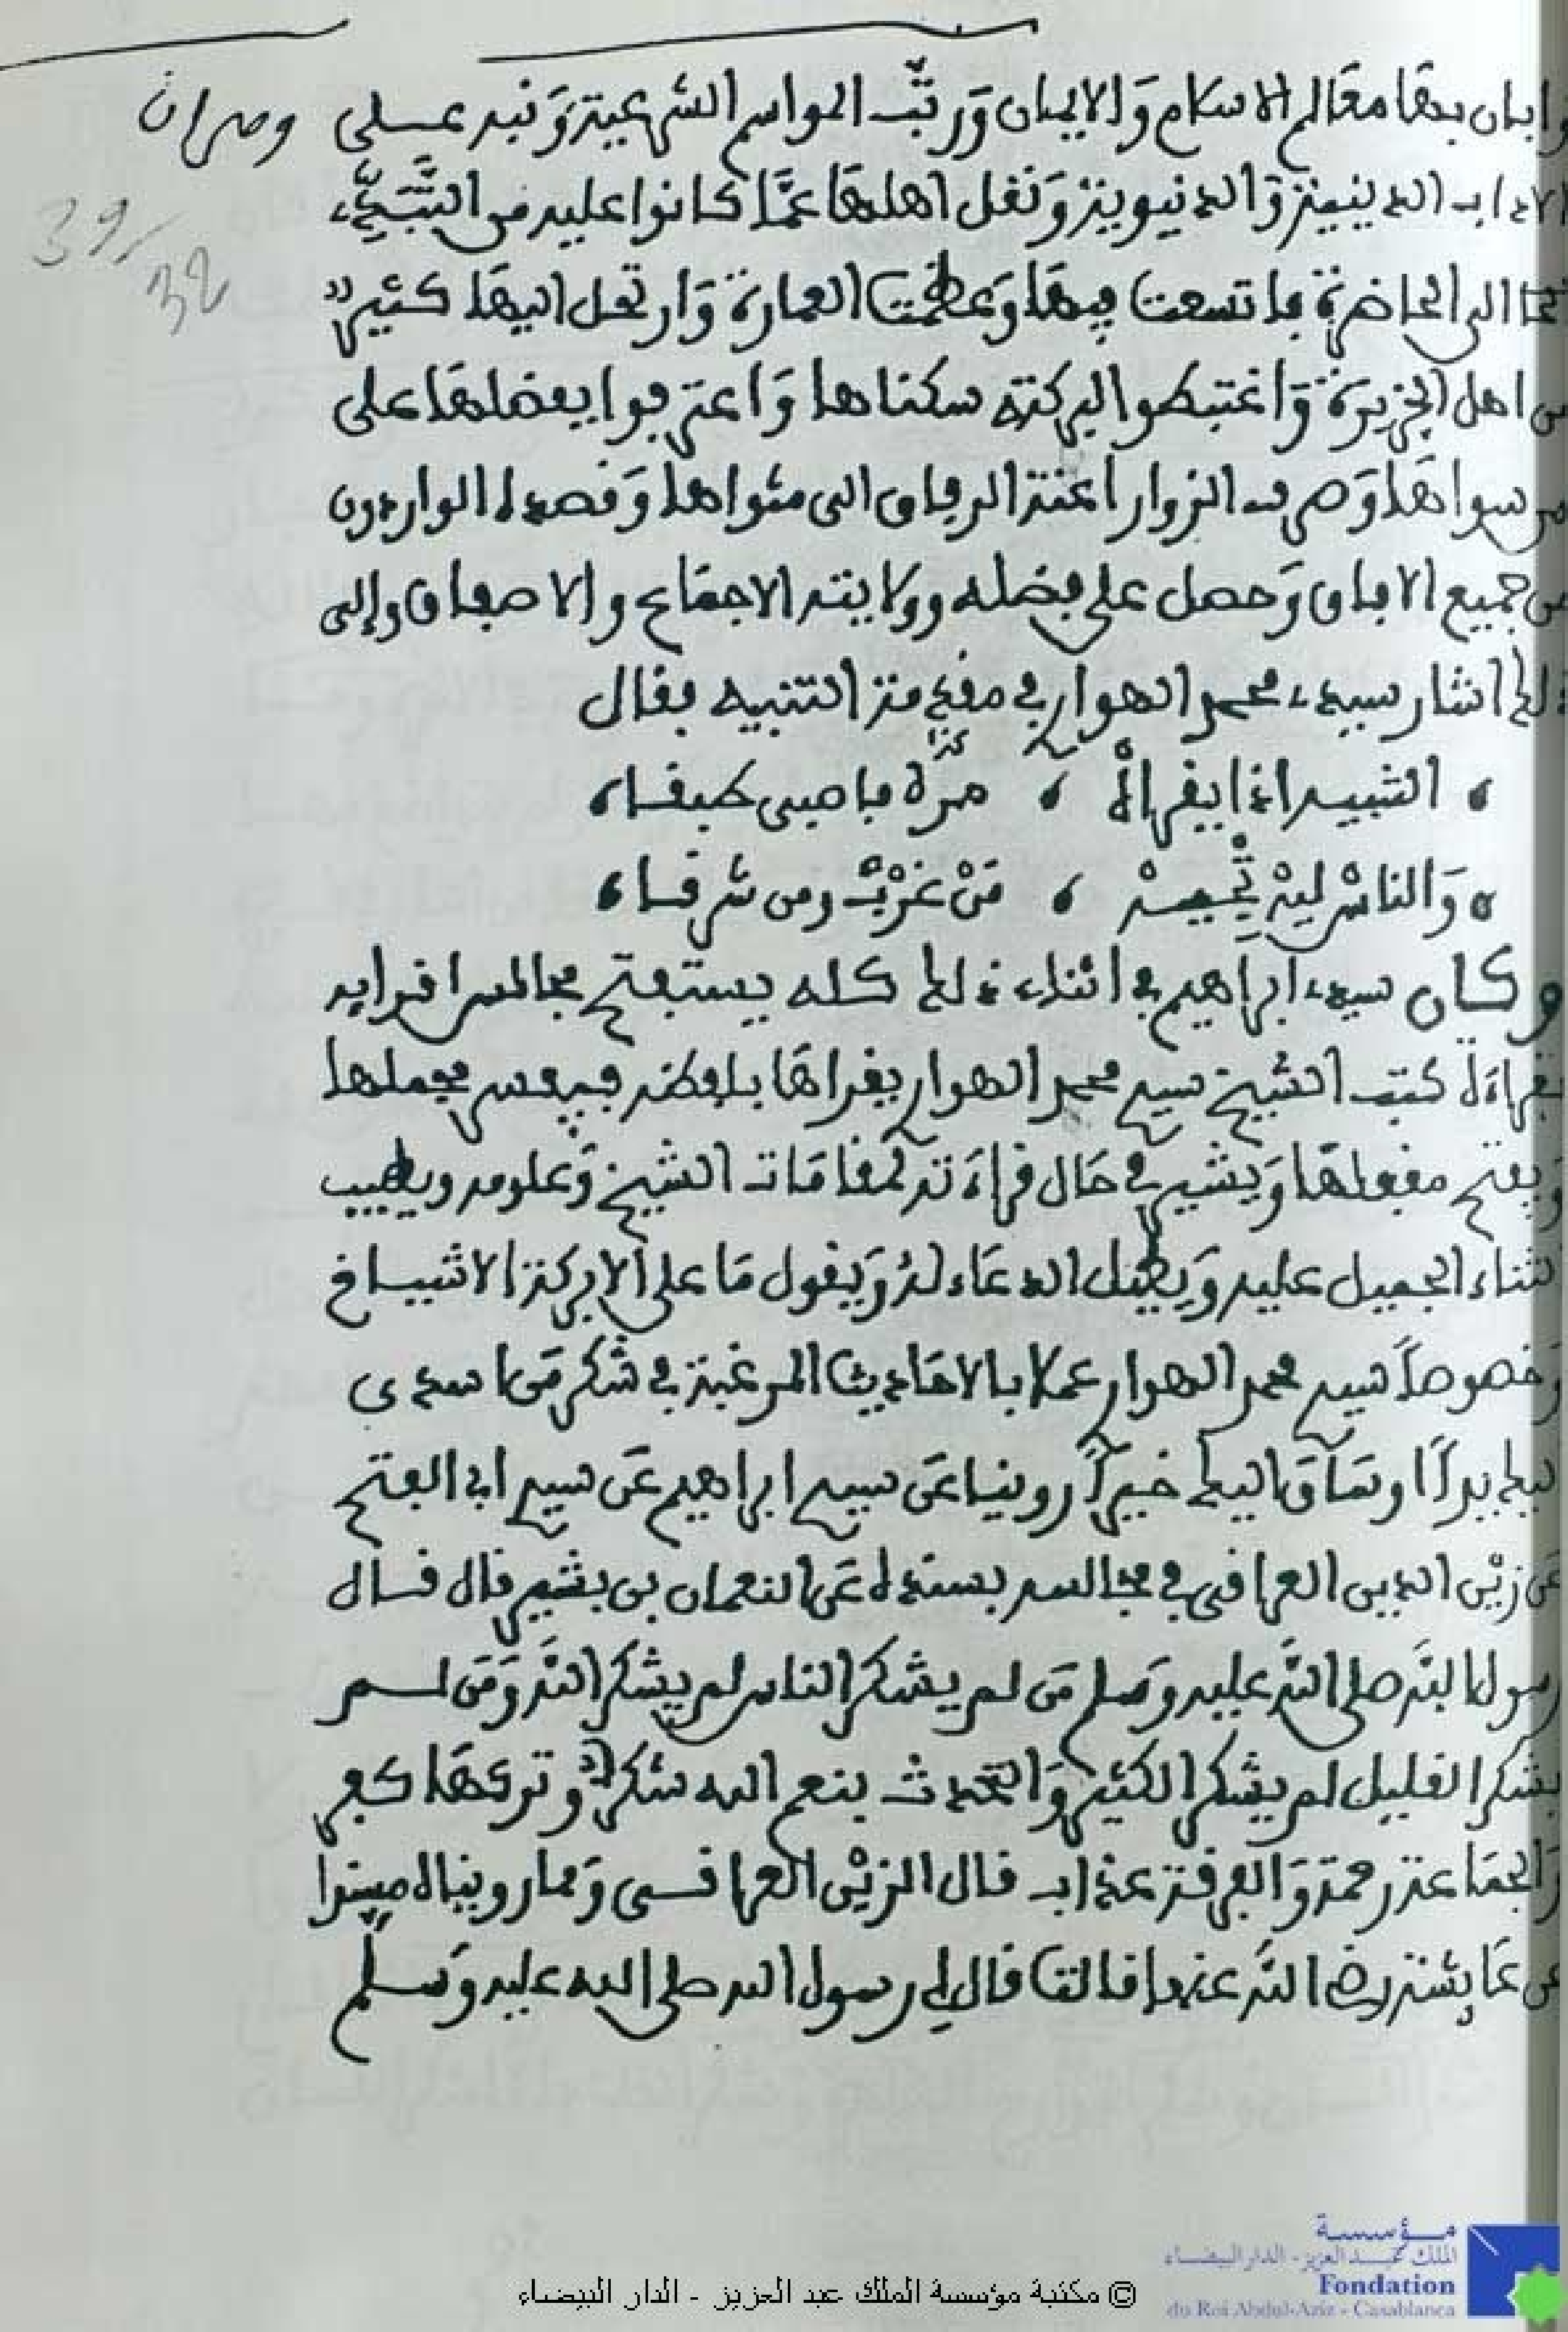 وابان بها معالم الاسلام وَالايمان وَرتّب المواسم الشرعية وَنبه على وهران
39/32
الاداب الدينية وَالدنيوية وَنقل اهلها عمَّا كانوا عليه من التبدّي
الى الحاضرة فاتسعت فيها وَعظمت العمارة وَارتحل اليها كثير
من اهل الجزيرة وَاغتبطوا البركته سكناها وَاعترفوا بفضلها على
من سواها وَصرف الزوار اعنة الرفاق الى مثواها وَقصده الواردون
من جميع الافاق وَحصل على فضله وولايته الاجماع والاصفاق والى
ذلك اشار سيدي محمد الهواري في مقدمة التنبيه فقال
التنبيه اذا يقراهْ ، مرّة فاصبى طبقا
كذا
وَالناسْ ليهْ تْجيهْ ، مَنْ غرْبْ ومن شرقا
وكان سيدي ابراهيم في اثناء ذلك كله يستفتح مجالس اقرايه
بقراءة كتب الشيخ سيدي محمد الهواري يقراها بلفظه فيفسر مجملها
وَيفتح مقفلها وَيشير في حَال قراءته لمقامَات الشيخ وَعلومه ويطيب
الثناء الجميل عليه وَيطيل الدعَاء لهُ وَيقول مَا على الا بركة الاشياخ
وَخصوصاً سيدي محمد الهواري عملا بالاحَاديث المرغبة في شكر مَن اسدى
اليك يداً او سَاق اليك خيراً روينا عَن سيدي ابراهيم عَن سيدي ابي الفتح
عَن زيْن الدين العراقي في مجالسه بسنده عَن النعمان بن بشير قال قال
رسول اللّه صلى اللّه عليه وَسلم مَن لم يشكر الناس لم يشكر اللّه وَمَن لم
يشكر القليل لم يشكر الكثير وَالتحدث بنعم الله شكر وتركهَا كفر
وَالجمَاعة رحمة وَالفرقة عذاب قال الزيْن العراقي وَمما رويناه ميتزا
عن عَايشة رضي اللّه عنها قالت قال لي رسول الله صلى الله عليه وَسلم
© مكتبة مؤسسة الملك عبد العزيز - الدار البيضاء
مؤسسة
الملك عبد العزيز - الدار البيضاء
Fondation
du Roi Abdul-Aziz - Casablanca